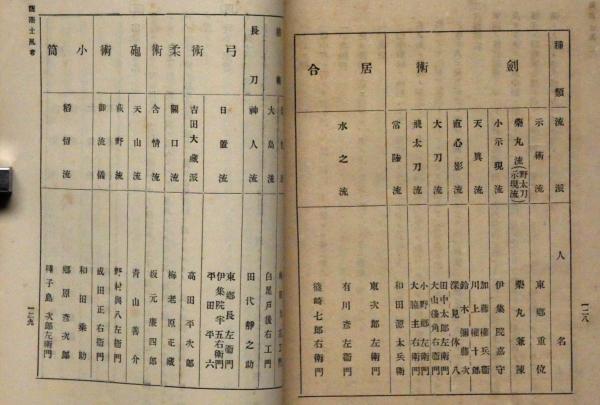 種類
流派
人名
劍術
示術流
東鄕重位
藥丸流(野太刀示現流)
藥丸兼陳
小示現流
伊集院嘉守
天眞流
加藤權兵衞
川上權十郞
直心影流
鈴木彌藤次
深見休八
大刀流
田中太郞左衞門
大山後角右衞門
飛太刀流
小野鄕左衞門
大脇主右衞門
常陸流
和田源太兵衞
居合
水之流
東次郞左衞門
有川彥左衞門
篠崎七郞右衞門
一二八
大島流
白尾戸後右工門
長刀
神人流
田代靜之助
弓術
日置流
東鄕長左衞門
伊集院半五右衞門
平田平六
吉田大藏派
高田平次郞
柔術
關口流
梅老原疋藏
含情流
坂元廉四郞
砲術
天山流
青山善介
荻野流
野村與八左衞門
御流儀
成田正右衞門
小筒
稻留流
和田乘助
鄕原彥次郞
種子島次郞左衞門
一二九
薩南士風考